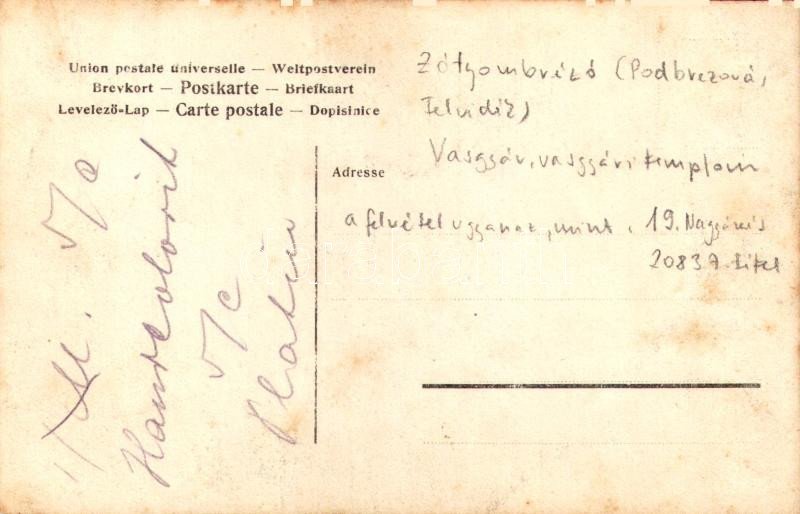 Union postale universelle — Weltpostverein
Brevkort — Postkarte — Briefkaart
Levelező-Lap — Carte postale — Dopisinice
Zólyombrézó (Podbrezová,
Felvidék)
Vasgyár, vasgyári templom
Adresse
a felvétel ugyanaz, mint
20837. tétel
Handcolorit
Platin